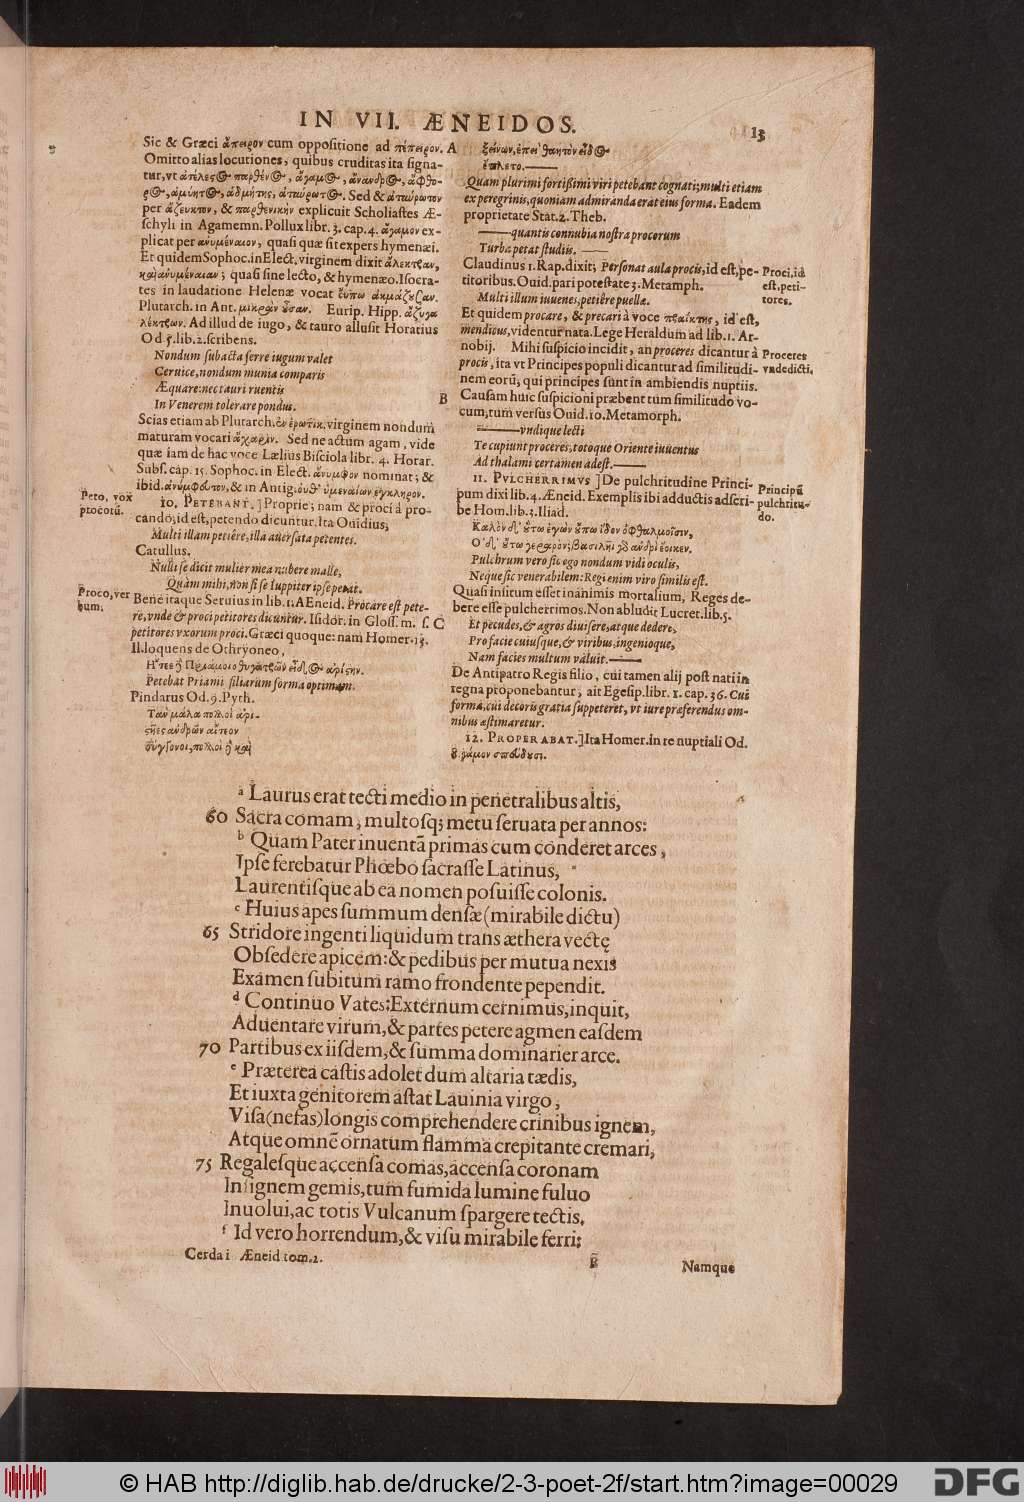 IN VII. ÆNEIDOS.
13
Sic & Græci ἄπειρον cum oppositione ad πέπειρον.
Omitto alias locutiones, quibus cruditas ita signa-
tur, vt
Sed & ἀταύρωτον
per ἄζευκτον, & παρθενικὴν explicuit Scholiastes Æ-
schyli in Agamemn. Pollux libr. 3. cap. 4. ἄγαμον ex-
plicat per ἀνυμέναιον, quasi quæ sit expers hymenæi.
Et quidem Sophoc. in Elect. virginem dixit ἄλεκτρον,
καὶ ἀνυμέναιαν; quasi sine lecto, & hymenæo. Isocra-
tes in laudatione Helenæ vocat
Plutarch. in Ant. μικρὰν οὖσαν. Eurip. Hipp. ἄζυγα
λέκτρων. Ad illud de iugo, & tauro allusit Horatius
Od. 5. lib. 2. scribens.
Nondum subacta ferre iugum valet
Ceruice, nondum munia comparis
Æquare: nec tauri ruentis
In Venerem tolerare pondus.
Scias etiam ab Plutarch. ἐν ἐρωτικ. virginem nondum
maturam vocari ἄχαριν. Sed ne actum agam, vide
quæ iam de hac voce Lælius Bisciola libr. 4. Horar.
Subs. cap. 15. Sophoc. in Elect. ἄνυμφον nominat; &
ibid. ἀνύμφευτον, & in Antig. οὔθ' ὑμεναίων ἔγκληρον.
Peto, vox
procorũ.
10. PETEBANT.] Proprie; nam & proci à pro-
cando, id est, petendo dicuntur. Ita Ouidius;
Multi illam petiêre, illa auersata petentes.
Catullus.
Nulli se dicit mulier mea nubere malle,
Quàm mihi, non si se Iuppiter ipse petat.
Proco, ver
bum.
Bene itaque Seruius in lib. 1. AEneid. Procare est pete-
re, vnde & proci petitores dicuntur. Isidor. in Gloss. m. s.
petitores vxorum proci. Græci quoque: nam Homer. 13.
Il. loquens de Othryoneo,
Petebat Priami filiarum forma optimam.
Pindarus Od. 9. Pyth.
A
B
C
Quam plurimi fortissimi viri petebant cognati; multi etiam
ex peregrinis, quoniam admiranda erat eius forma. Eadem
proprietate Stat. 2. Theb.
——quantis connubia nostra procorum
Turba petat studiis. ——
Claudinus 1. Rap. dixit; Personat aula procis, id est, pe-
titoribus. Ouid. pari potestate 3. Metamph.
Proci. id
est, peti-
tores.
Multi illum iuuenes, petiêre puellæ.
Et quidem procare, & precari à voce προΐκτης, id est,
mendicus, videntur nata. Lege Heraldum ad lib. 1. Ar-
nobij. Mihi suspicio incidit, an proceres dicantur à
procis, ita vt Principes populi dicantur ad similitudi-
nem eorũ, qui principes sunt in ambiendis nuptiis.
Proceres
vnde dicti.
Causam huic suspicioni præbent tùm similitudo vo-
cum, tum versus Ouid. 10. Metamorph.
——vndique lecti
Te cupiunt proceres, totoque Oriente iuuentus
Ad thalami certamen adest. ——
11. PVLCHERRIMVS] De pulchritudine Princi-
pum dixi lib. 4. Æneid. Exemplis ibi adductis adscri-
be Hom. lib. 3. Iliad.
Principũ
pulchritu-
do.
Pulchrum vero sic ego nondum vidi oculis,
Neque sic venerabilem: Regi enim viro similis est.
Quasi insitum esset in animis mortalium, Reges de-
bere esse pulcherrimos. Non abludit Lucret. lib. 5.
Et pecudes, & agros diuisere, atque dedere,
Pro facie cuiusque, & viribus, ingenioque,
Nam facies multum valuit. ——
De Antipatro Regis filio, cui tamen alij post nati in
regna proponebantur; ait Egesip. libr. 1. cap. 36. Cui
forma, cui decoris gratia suppeteret, vt iure præferendus om-
nibus æstimaretur.
12. PROPERABAT.] Ita Homer. in re nuptiali Od.
8. γάμον σπεύδουσι.
a Laurus erat tecti medio in penetralibus altis,
60 Sacra comam, multosq; metu seruata per annos:
b Quam Pater inuentã primas cum conderet arces,
Ipse ferebatur Phœbo sacrasse Latinus,
Laurentisque ab ea nomen posuisse colonis.
c Huius apes summum densæ (mirabile dictu)
65 Stridore ingenti liquidum trans æthera vectę
Obsedere apicem: & pedibus per mutua nexis
Examen subitum ramo frondente pependit.
d Continuo Vates: Externum cernimus, inquit,
Aduentare virum, & partes petere agmen easdem
70 Partibus ex iisdem, & summa dominarier arce.
e Præterea castis adolet dum altaria tædis,
Et iuxta genitorem astat Lauinia virgo,
Visa (nefas) longis comprehendere crinibus ignem,
Atque omnẽ ornatum flamma crepitante cremari,
75 Regalesque accensa comas, accensa coronam
Insignem gemis, tum fumida lumine fuluo
Inuolui, ac totis Vulcanum spargere tectis.
f Id vero horrendum, & visu mirabile ferri:
Cerda i Æneid tom. 2.
B
Namque
© HAB http://diglib.hab.de/drucke/2-3-poet-2f/start.htm?image=00029
DFG